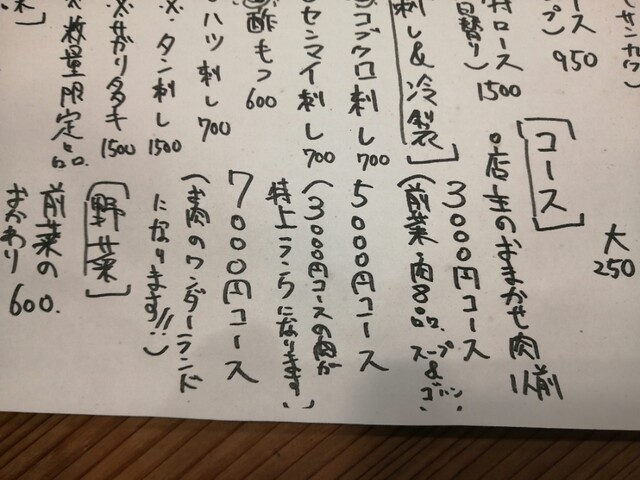 (サンカク)
ース 950
特ロース 1500
日替り)
刺し&冷製]
・コブクロ刺し 700
・センマイ刺し 700
酢もつ 600
・ハツ刺し 700
※・タン刺し 1500
※・サガリタタキ 1500
※数量限定品。
大 250
[コース]
。店主のおまかせ肉 1人前
3000円コース
(前菜・肉8品。スープ&ゴハン。
5000円コース
(3000円コースの肉が
特上ランクになります。)
7000円コース
(お肉のワンダーランド
になります!!)
[野菜]
前菜の
おかわり 600.